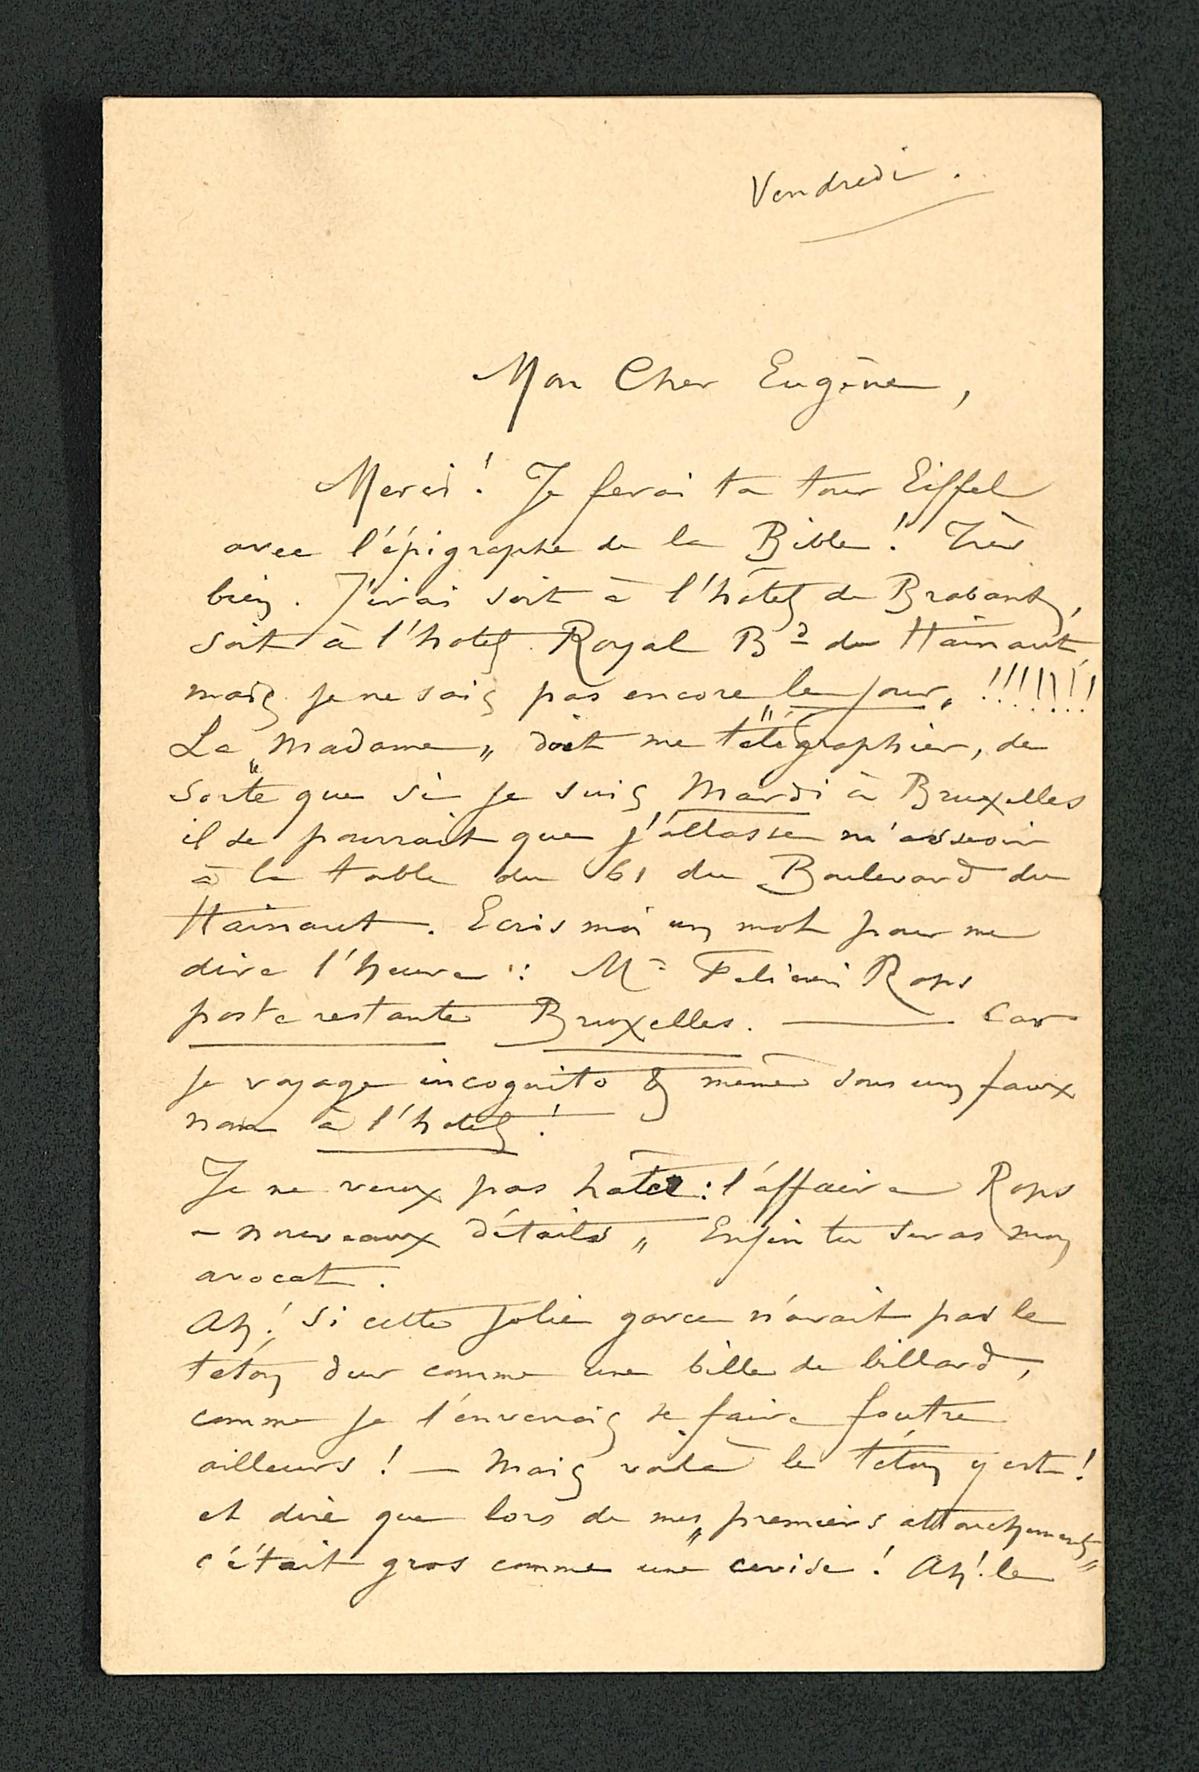 Vendredi.
Mon Cher Eugène,
Merci ! Je ferai ta tour Eiffel
avec l'épigraphe de la Bible ! Très
bien. J'irai soit à l'hôtel de Brabant,
soit à l'hotel Royal Bd du Hainaut,
mais je ne sais pas encore „le jour„ !!!!!!!
La „Madame„ doit me télégraphier, de
sorte que si je suis Mardi à Bruxelles
il se pourrait que j'allasse m'asseoir
à la table du 61 du Boulevard du
Hainaut. Ecris moi un mot pour me
dire l'heure : Mr Félicien Rops
poste restante Bruxelles. — Car
je voyage incognito & même sous un faux
nom à l'hotel !
Je ne veux pas hâter : l'affaire Rops
– nouveaux détails „ Enfin tu seras mon
avocat.
Ah ! si cette jolie garce n'avait pas le
teton dur comme une bille de billard,
comme je l'enverrais se faire foutre
ailleurs ! — Mais voilà le téton y est !
et dire que lors de mes „premiers attouchements„
c'était gros comme une cerise ! Ah ! le